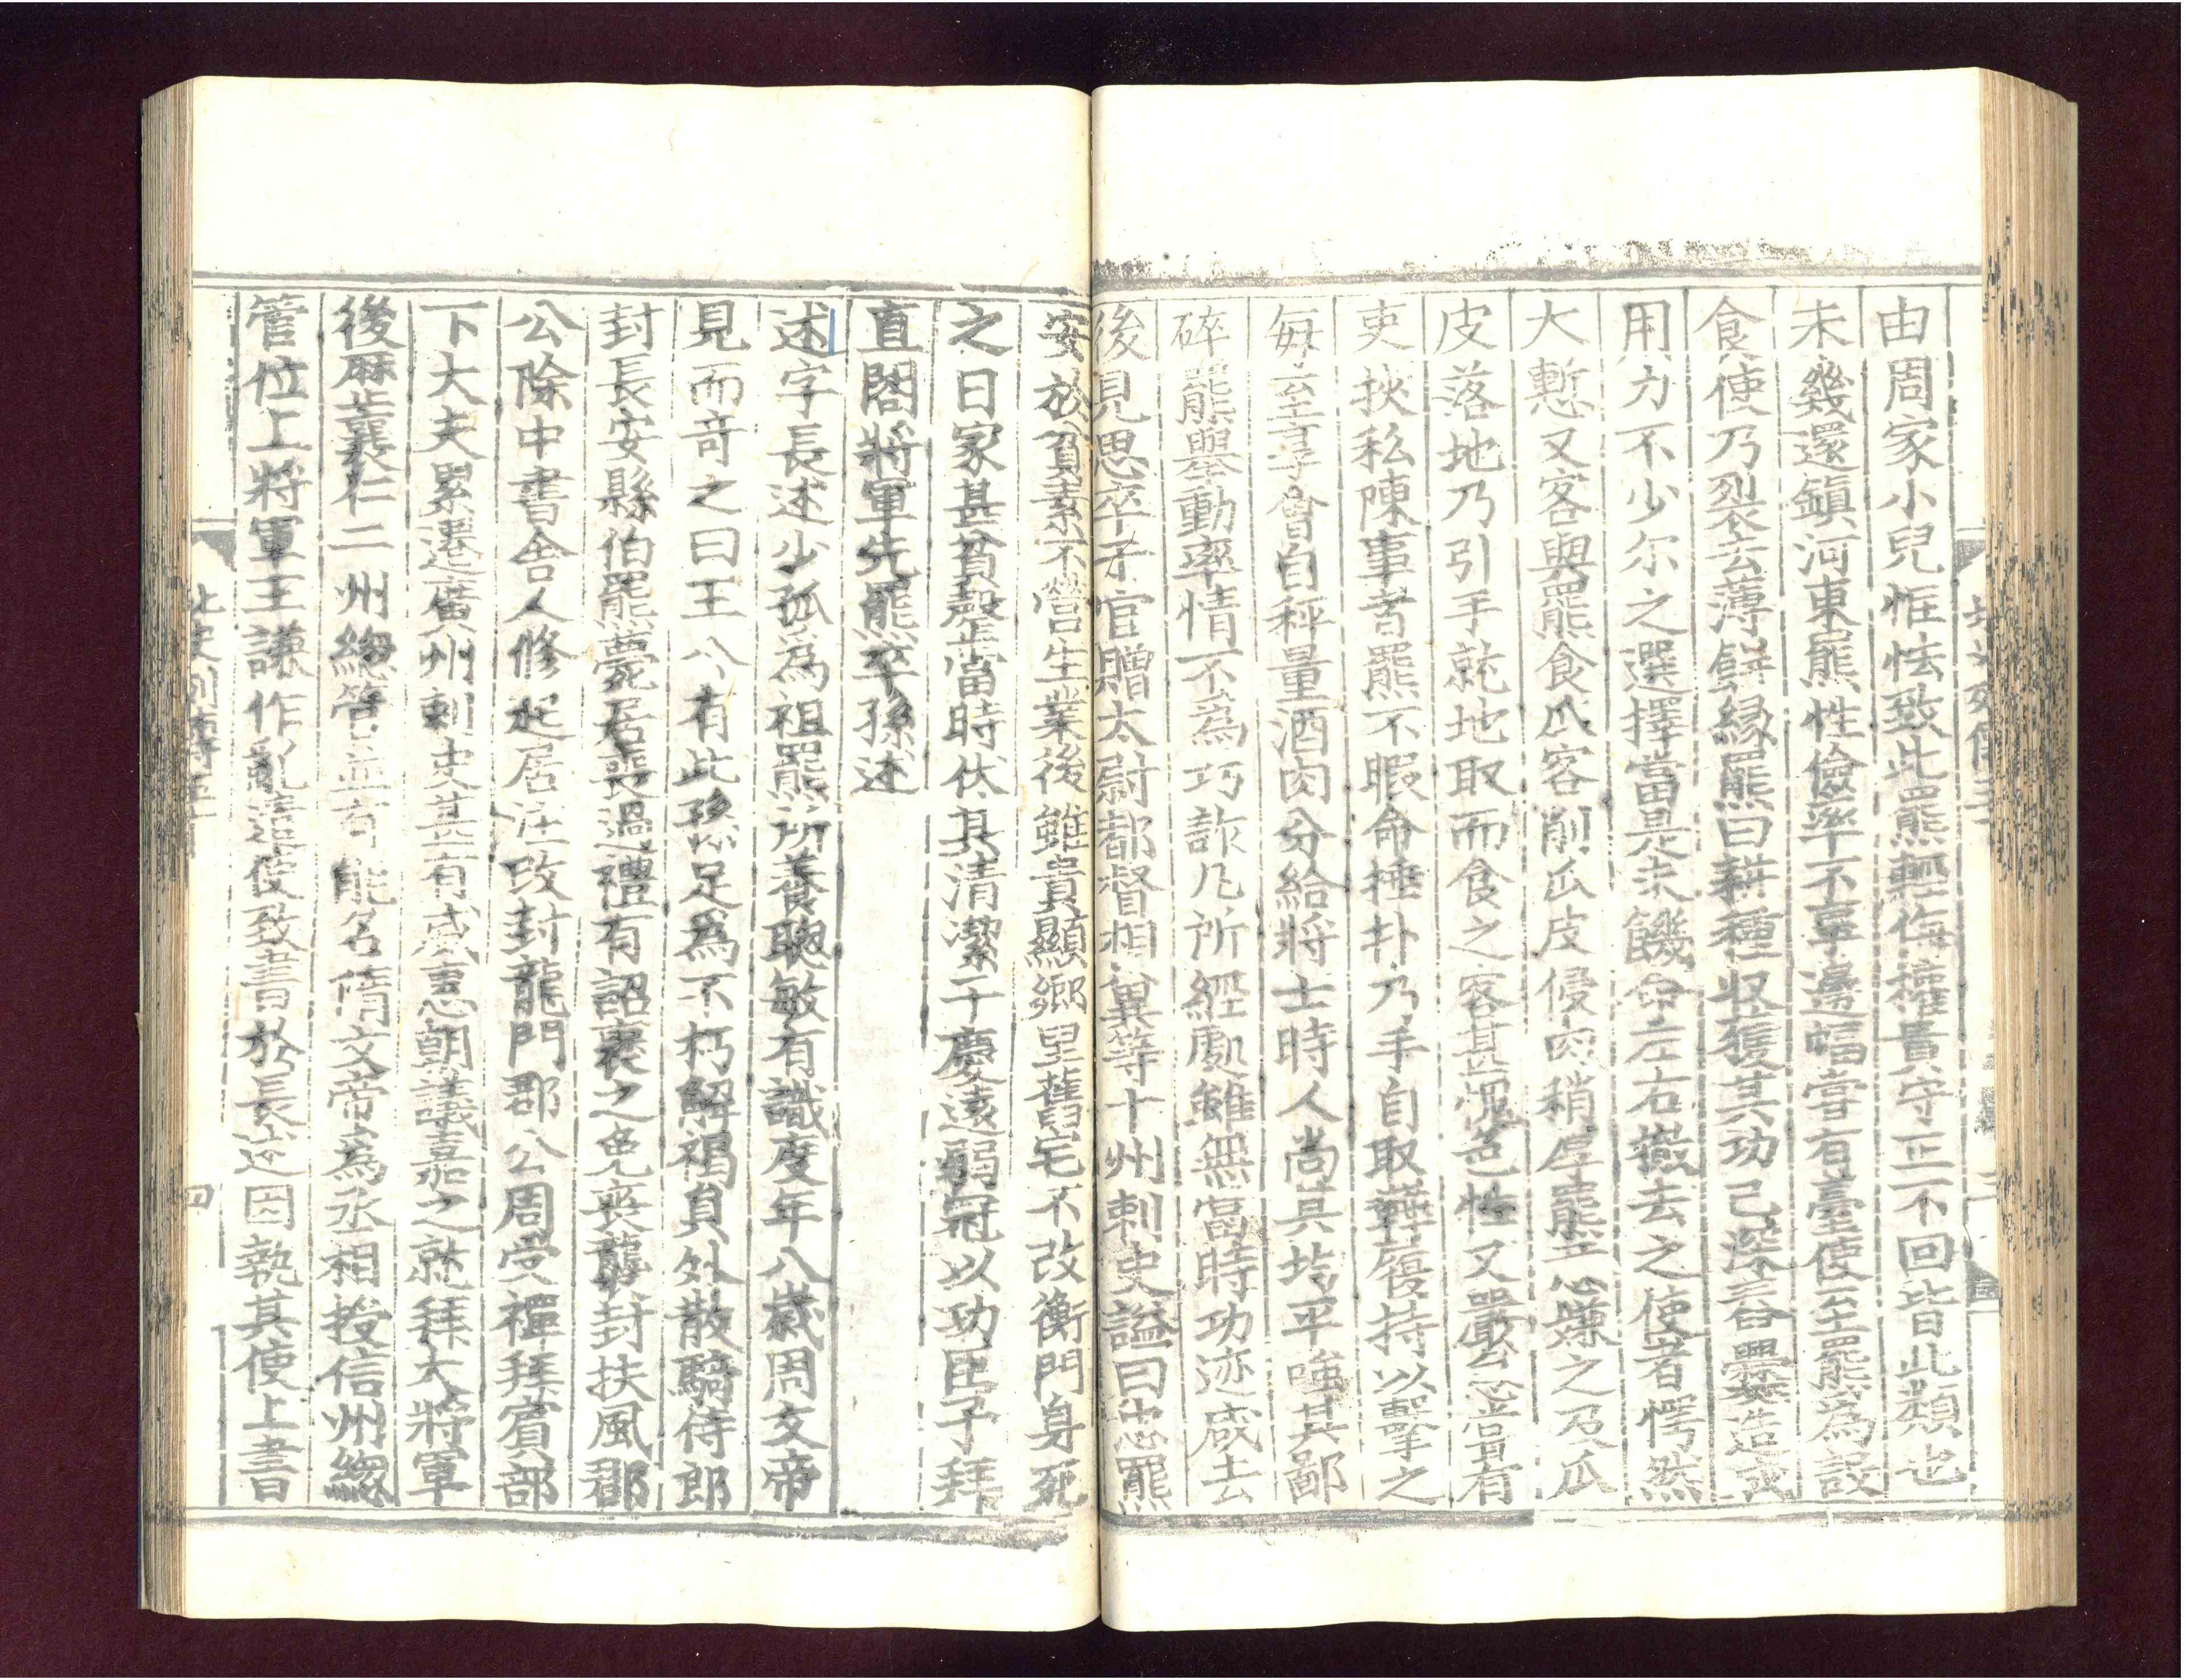 由周家小兒恇怯致此羆輕侮權貴守正不回皆此類也
未幾還鎮河東羆性儉率不事邊幅嘗有臺使至羆爲設
食使乃裂去薄餅緣羆曰耕種收獲其功已深舂爨造成
用力不少尔之選擇當是未饑命左右撤去之使者愕然
大慙又客與羆食瓜客削瓜皮侵肉稍厚羆意嫌之及瓜
皮落地乃引手就地取而食之客甚愧色性又嚴急嘗有
吏挾私陳事者羆不暇命捶扑乃手自取鞾履持以擊之
每至享會自秤量酒肉分給將士時人尚其均平嗤其鄙
碎羆舉動率情不爲巧詐凡所經處雖無當時功迹咸去
後見思卒于官贈太尉都督相冀等十州刺史謚曰忠羆
安於貧素不營生業後雖貴顯鄉里舊宅不改衡門身死
之日家甚貧罄當時伏其清潔子慶遠弱冠以功臣子拜
直閤將軍先羆卒孫述
述字長述少孤爲祖羆所養聰敏有識度年八歲周文帝
見而奇之曰王公有此孫足爲不朽解褐員外散騎侍郎
封長安縣伯羆薨居喪過禮有詔褒之免喪襲封扶風郡
公除中書舍人修起居注改封龍門郡公周受禪拜賓部
下大夫累遷廣州刺史甚有威惠朝議嘉之就拜大將軍
後歷襄仁二州總管並有能名隋文帝爲丞相授信州總
管位上將軍王謙作亂遣使致書於長述因執其使上書
北史列傳五十
四